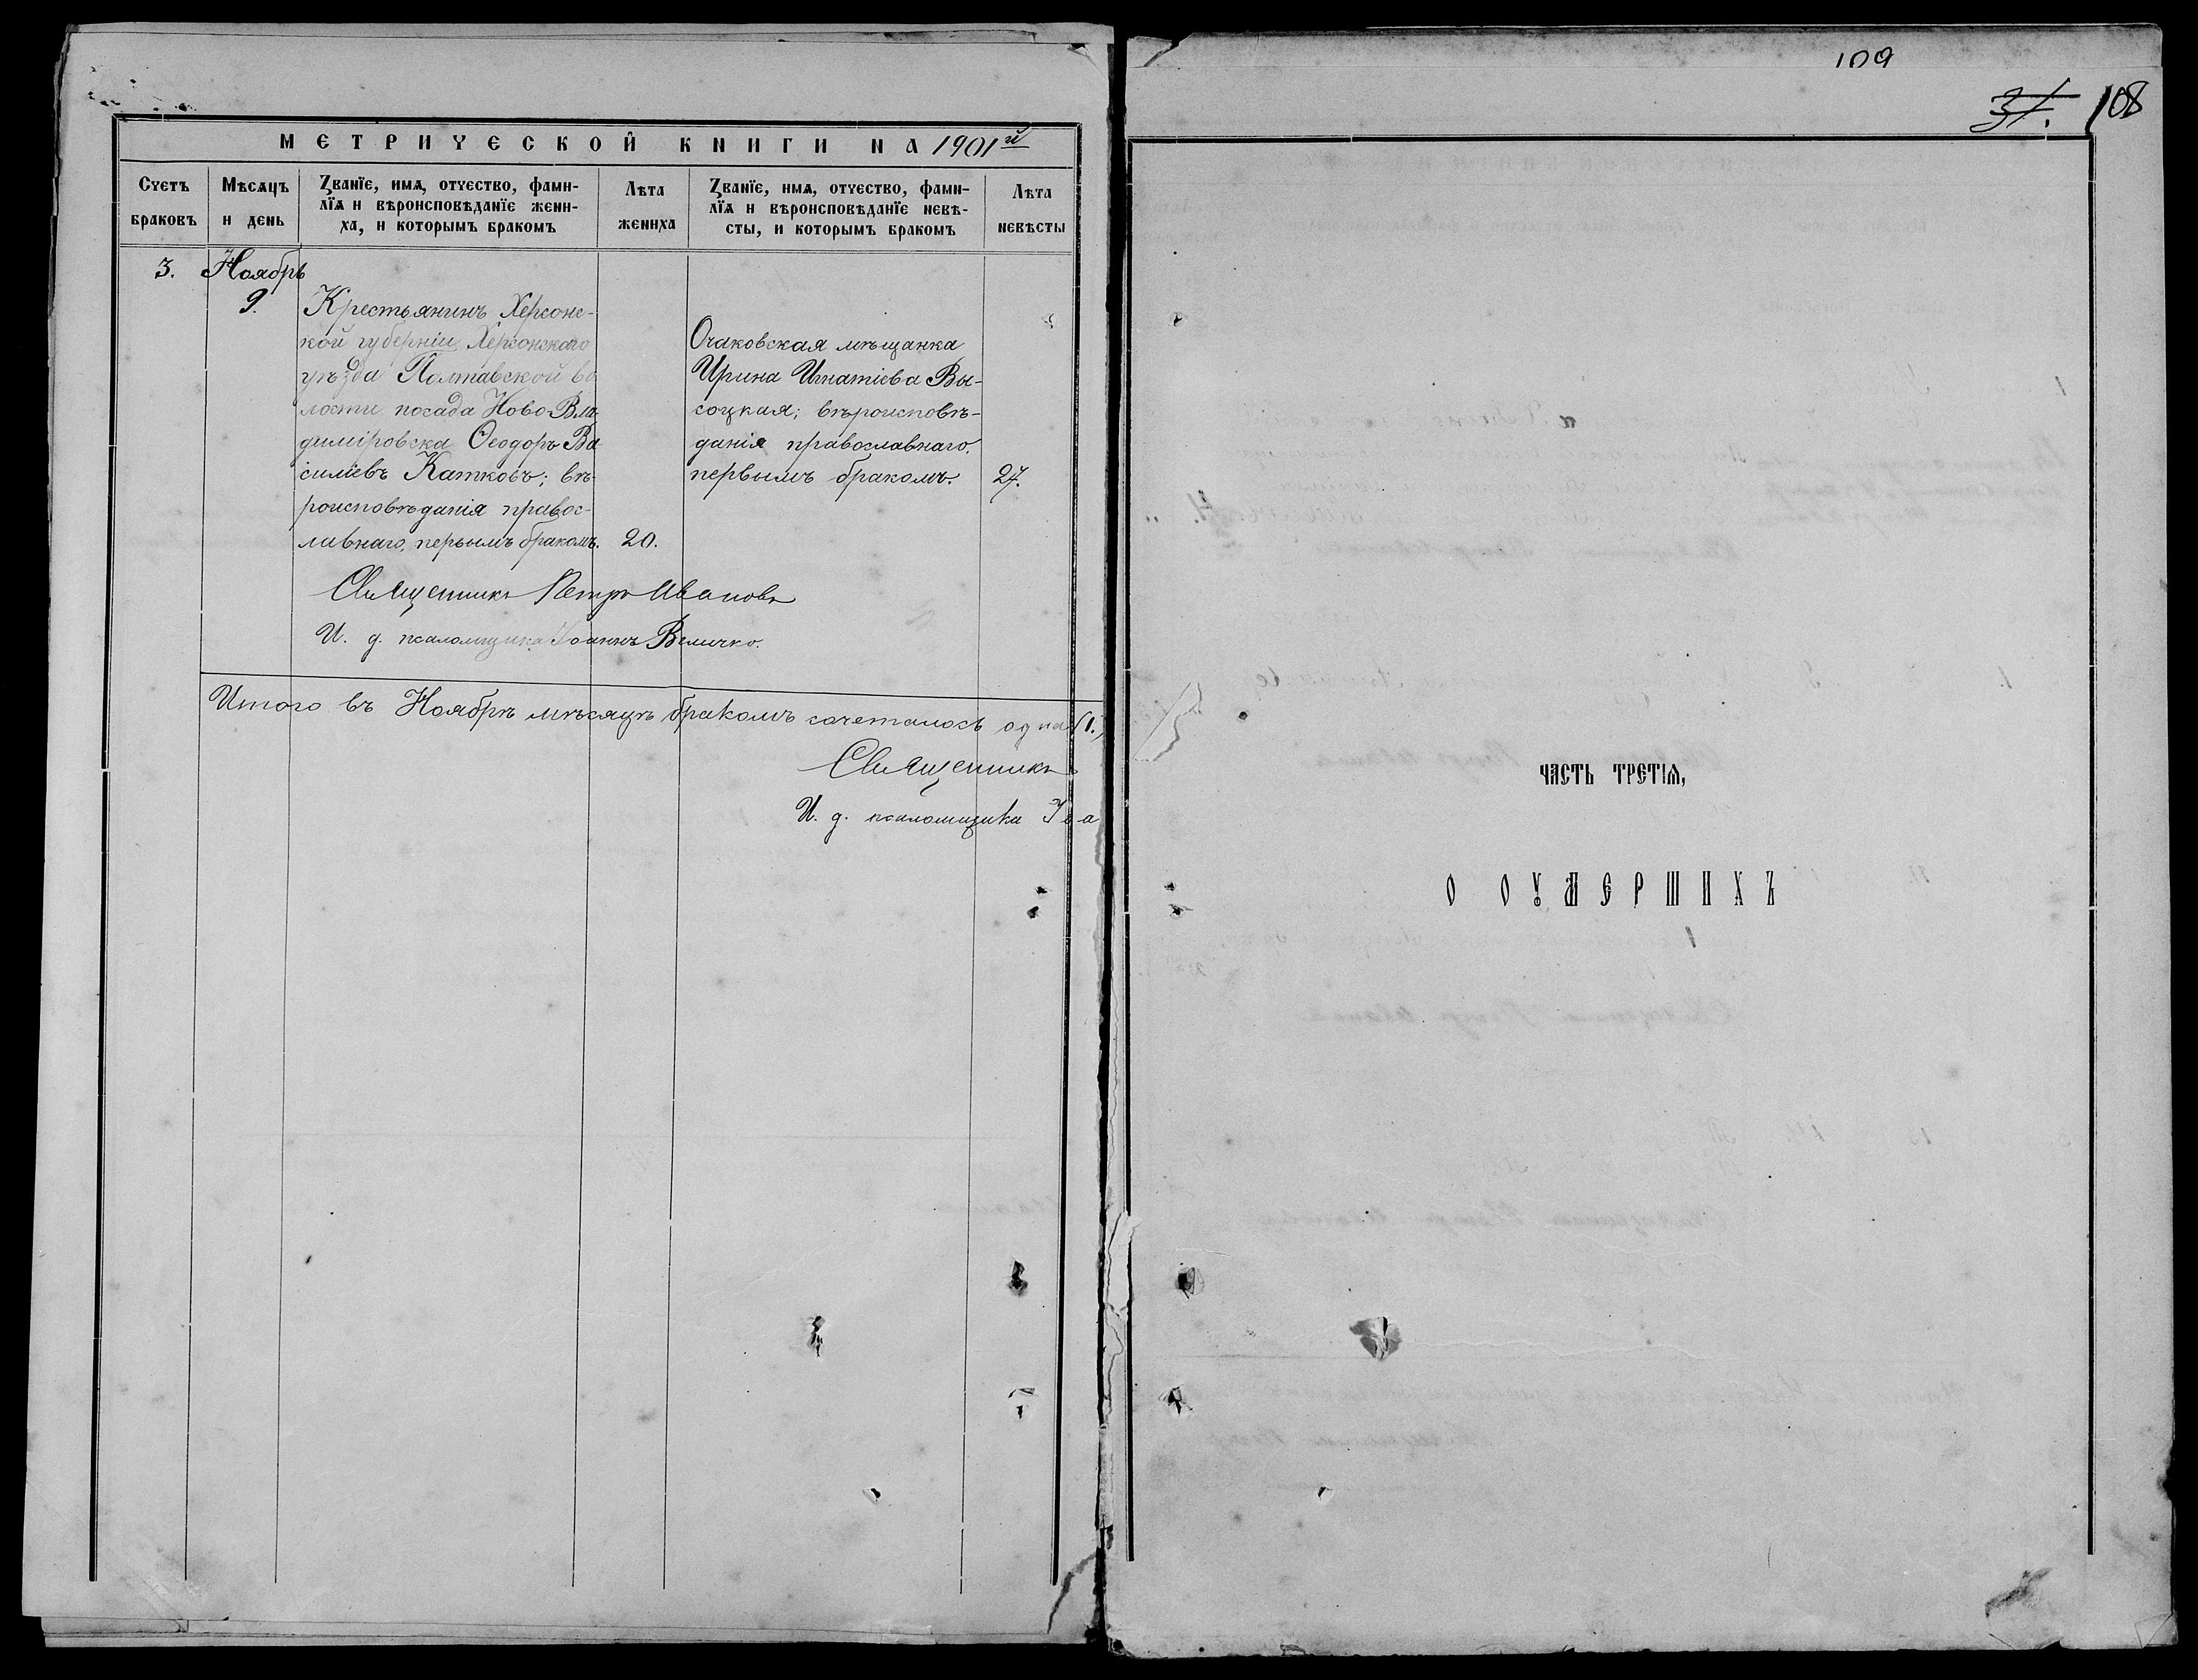 МЕТРИЧЕСКОЙ КНИГИ НА 1901й
Счетъ браковъ
Мѣсяцъ и день
Званїе, имѧ, отчество, фами-
лїѧ и вѣроисповѣданїе жени-
ха, и которымъ бракомъ
Лѣта жениха
Званїе, имѧ, отчество, фами-
лїѧ и вѣроисповѣданїе невѣ-
сты, и которымъ бракомъ
Лѣта невѣсты
3.
Ноябрь
9.
Крестьянинъ Херсонс-
кой губерніи Херсонскаго
уѣзда Полтавской во
лости посада Ново-Вла-
диміровска Ѳеодоръ Ва
силіевъ Катковъ; вѣ-
роисповѣданія правос-
лавнаго, первымъ бракомъ.
20.
Очаковская мѣщанка
Ирина Игнатіева Вы-
соцкая; вѣроисповѣ-
данія православнаго,
первымъ бракомъ.
27.
Священникъ Петръ Ивановъ
И. д. псаломщика Іоаннъ Величко.
Итого въ Ноябрѣ мѣсяцѣ бракомъ сочеталось одна (1.)
Священникъ
И. д. псаломщика Іоа
109
37. 108
ЧАСТЬ ТРЕТІѦ,
О ОУМЕРШИХЪ